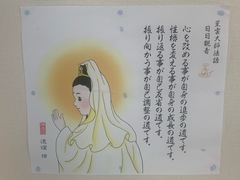 星雲大師法語
日日観音
心を改める事が自身の進歩の道です。
性格を変える事が自身の成長の道です。
振り返る事が自己反省の道です。
振り向かう事が自己調整の道です。